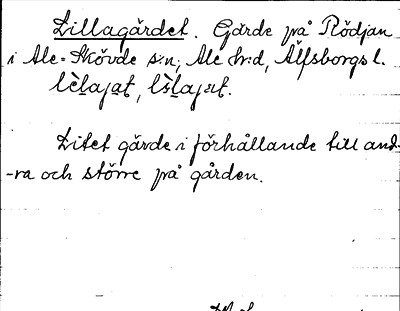 Lillagärdet. Gärde på Rödjan
i Ale-Skövde s:n, Ale hrd, Älfsborgs l.
Litet gärde i förhållande till and-
-ra och större på gården.